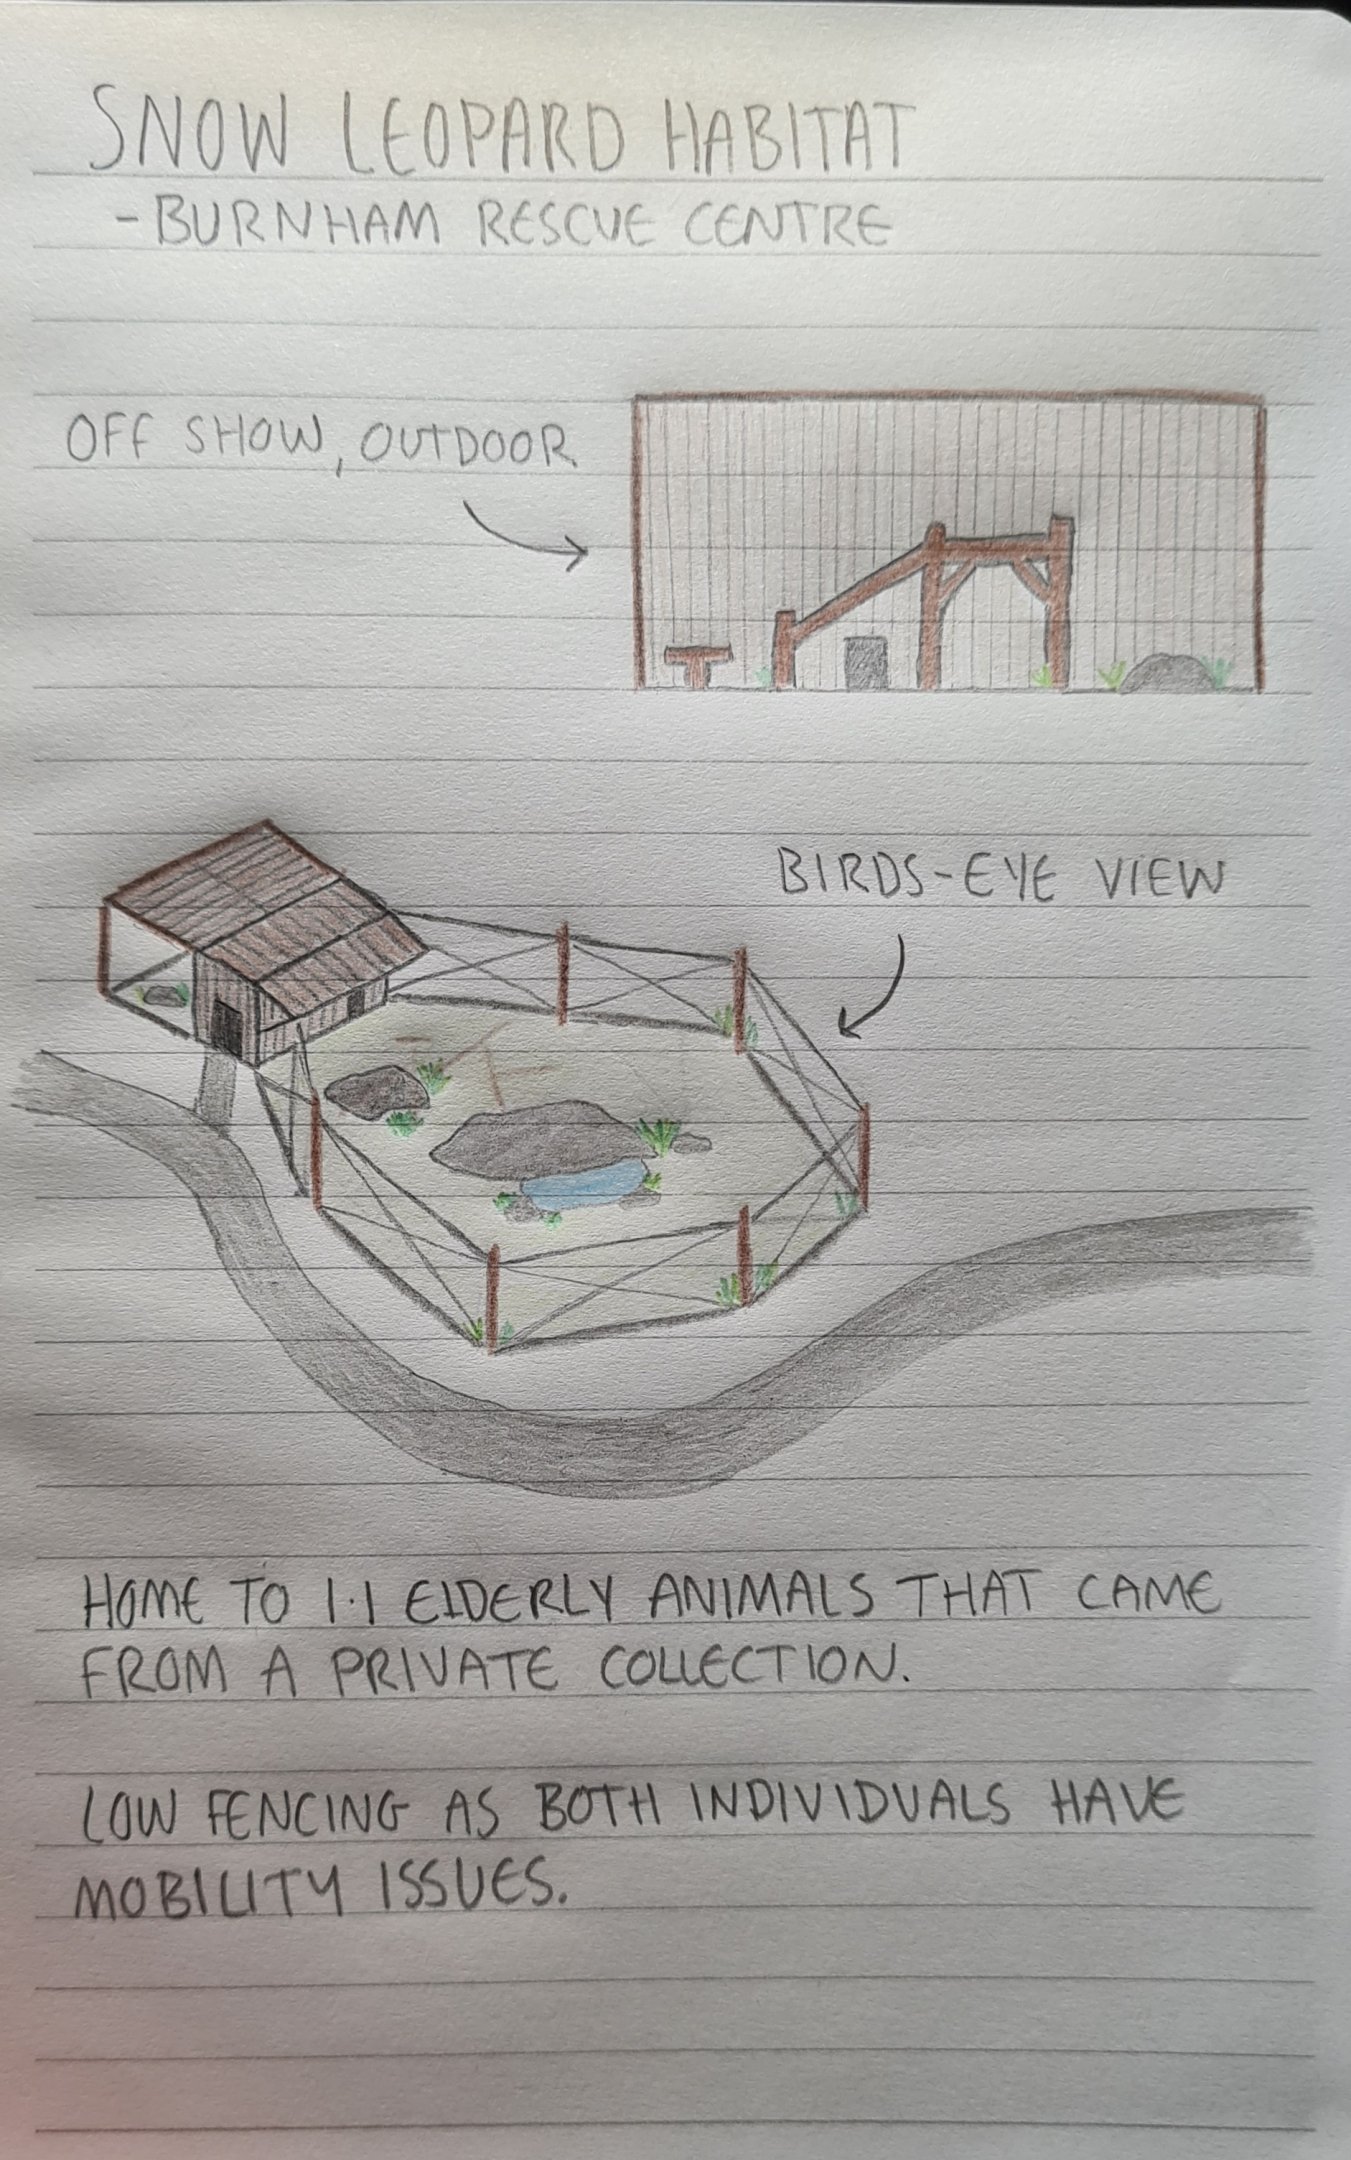 SNOW LEOPARD HABITAT
-BURNHAM RESCUE CENTRE
OFF SHOW, OUTDOOR
BIRDS-EYE VIEW
HOME TO 1.1 ELDERLY ANIMALS THAT CAME
FROM A PRIVATE COLLECTION.
LOW FENCING AS BOTH INDIVIDUALS HAVE
MOBILITY ISSUES.